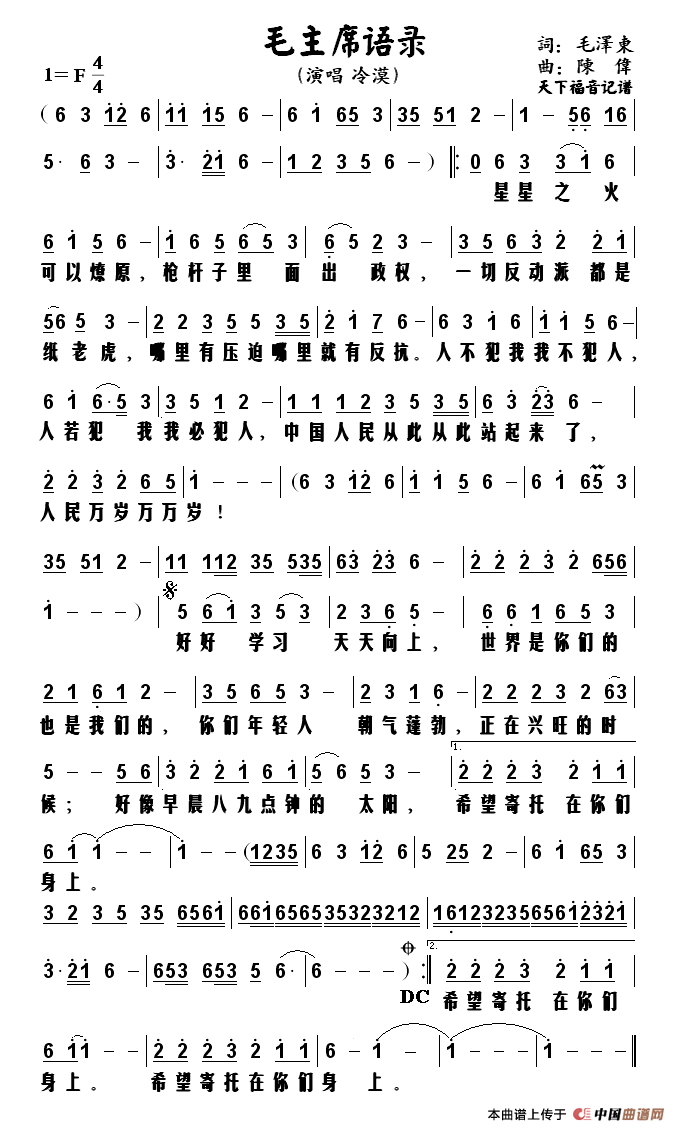 毛主席语录
(演唱 冷漠)
詞: 毛澤東
曲: 陳偉
天下福音记谱
1=F 4/4
( 6 3 12 6 | 11 15 6 – | 6 1 65 3 | 35 51 2 – | 1 – 56 16 |
5· 6 3 – | 3· 21 6 – | 1 2 3 5 6 – ) ‖: 0 6 3 3 1 6
星星之火
6 1 5 6 – | 1 6 5 6 5 3 | 6 5 2 3 – | 3 5 6 3 2 2 1 |
可以燎原, 枪杆子里 面出 政权, 一切反动派 都是
56 5 3 – | 2 2 3 5 5 3 5 | 2 1 7 6 – | 6 3 1 6 | 1 1 5 6 – |
纸老虎, 哪里有压迫哪里就有反抗。人不犯我我不犯人,
6 1 6·5 3 | 3 5 1 2 – | 1 1 1 2 3 5 3 5 | 6 3 23 6 – |
人若犯 我我必犯人, 中国人民从此从此站起来 了,
2 2 3 2 6 5 | 1 – – – | (6 3 12 6 | 1 5 6 – | 6 1 65 3 |
人民万岁万万岁!
35 51 2 – | 11 112 35 535 | 63 23 6 – | 2 2 2 3 2 656 |
1 – – – ) | 5 6 1 3 5 3 | 2 3 6 5 – | 6 6 1 6 5 3 |
好好 学习 天天向上, 世界是你们的
2 1 6 1 2 – | 3 5 6 5 3 | 2 3 1 6 – | 2 2 2 3 2 63 |
也是我们的, 你们年轻人 朝气蓬勃, 正在兴旺的时
1.
5 – – 5 6 | 3 2 2 1 6 1 | 5 6 5 3 – – | 2 2 2 3 2 1 1 |
候; 好像早晨八九点钟的 太阳, 希望寄托 在你们
6 1 1 – – | 1 – – (1235 | 6 3 12 6 | 5 25 2 – | 6 1 65 3 |
身上。
3 2 3 5 35 6561 | 66165653532 3212 | 1612323565612321 |
3·21 6 – | 653 653 5 6· | 6 – – – ) :‖ 2 2 2 3 2 1 1 |
2.
DC
希望寄托 在你们
6 11 – – | 2 2 2 3 2 1 1 | 6 – 1 – | 1 – – – | 1 – – – ‖
身上。 希望寄托在你们身 上。
本曲谱上传于 中国曲谱网